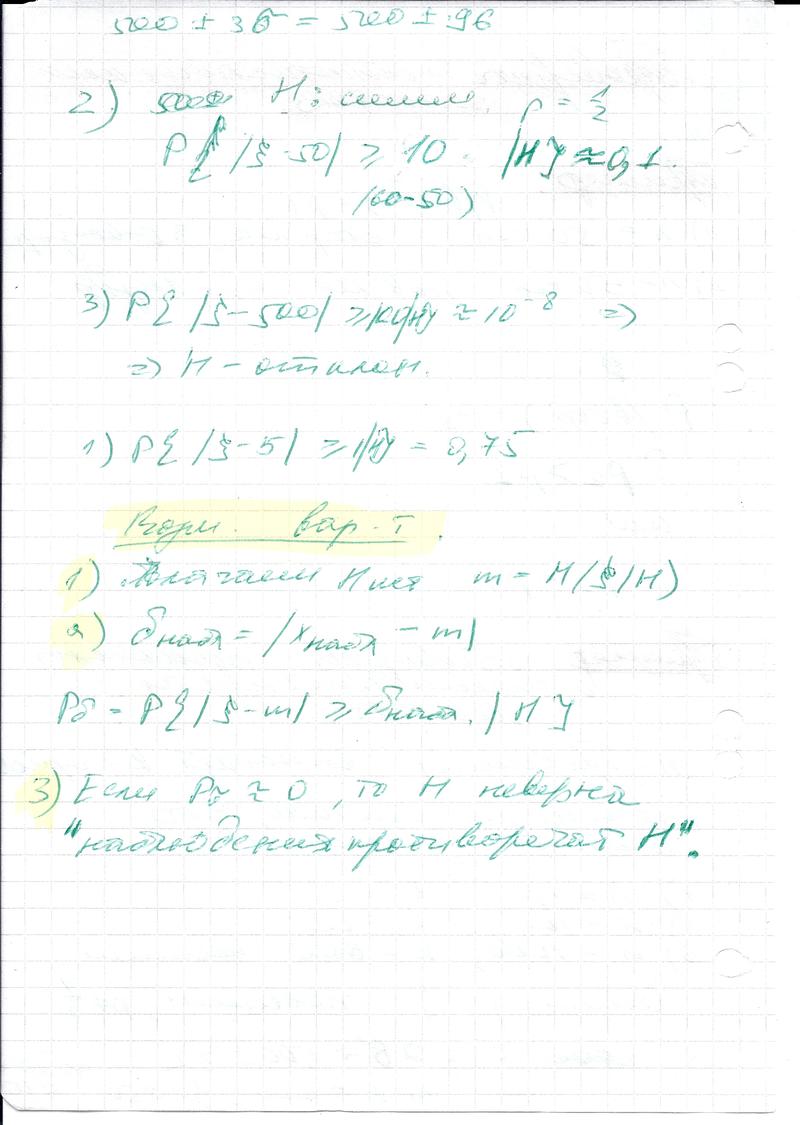 500 ± 3σ = 500 ± 96
2) H: симм. p = 1/2
P{ |ξ-50| ≥ 10 |H} ≈ 0,1.
(60-50)
3) P{ |ξ-500| ≥ 100|H} ≈ 10⁻⁸ ⇒
⇒ H - отклон.
1) P{ |ξ-5| ≥ 1|H} = 0,75
вар-т
1) m = M(ξ|H)
2) δнабл = |xнабл - m|
Pδ = P{ |ξ-m| ≥ δнабл. | H }
3) Если Pδ ≈ 0, то H неверна
"наблюдения противоречат H".